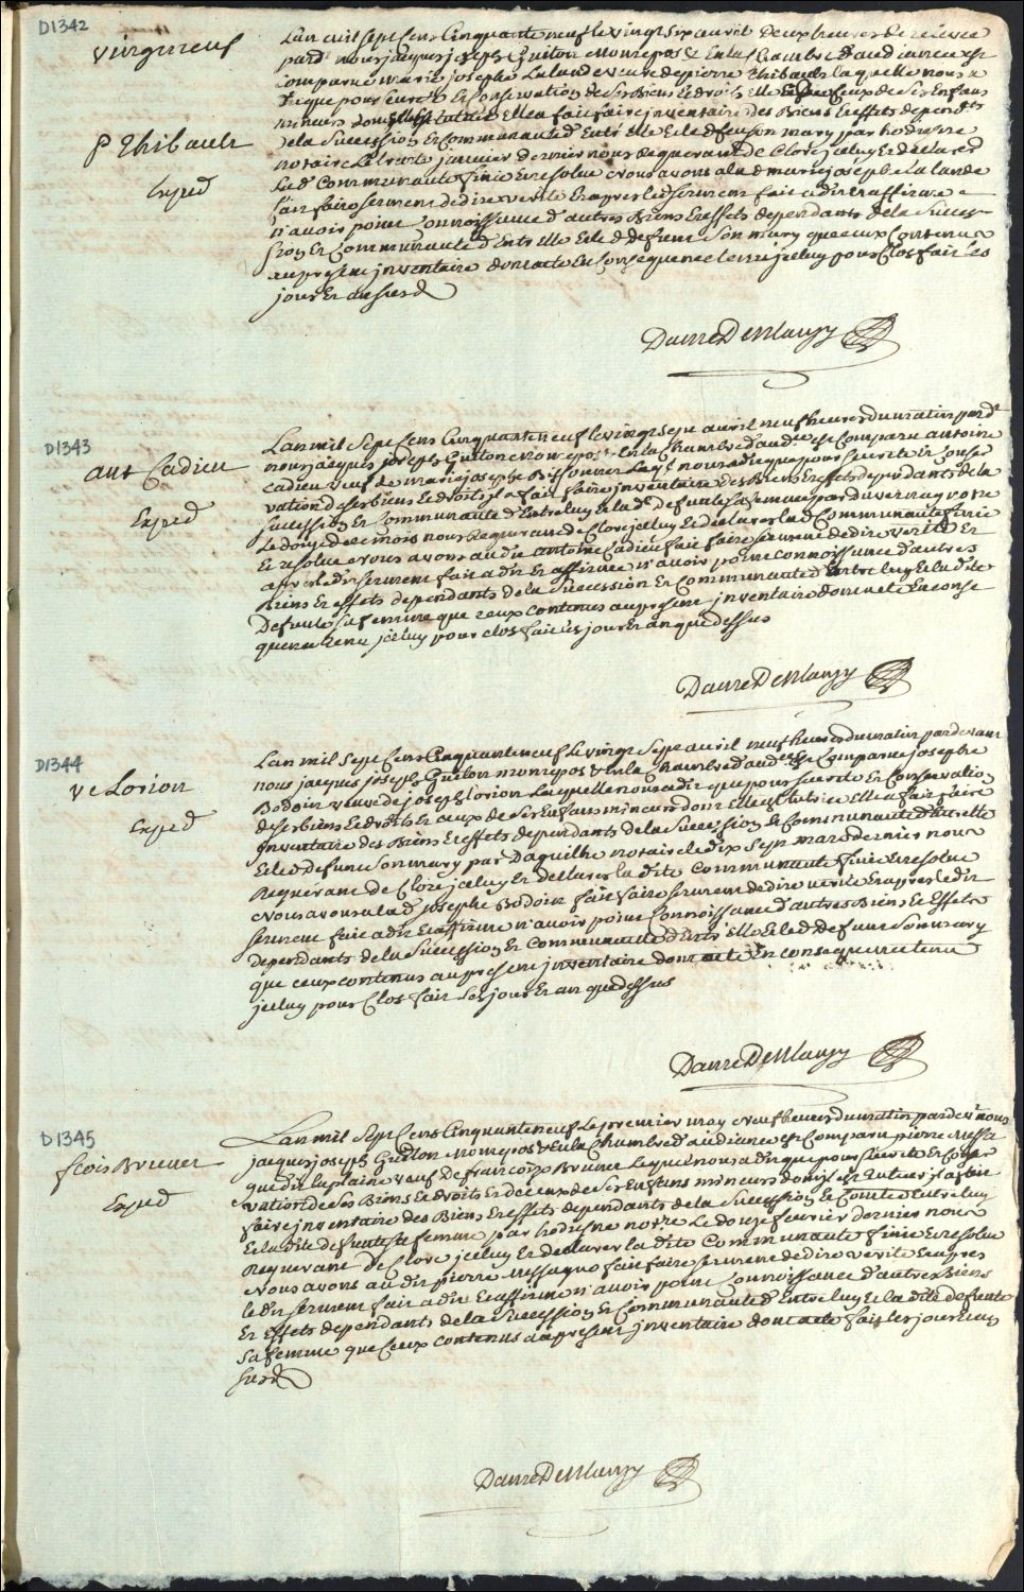 D1342
vingtneuf
Lan mil sept Cens Cinquante neuf le vingt six avril deux heures de relevée
pard nous jacques joseph Guiton Monrepos & En la Chambre d'audiance est
comparue marie josephe Lalande veuve de pierre Thibault laquelle nous a
dit que pour sureté & Conservation de ses Biens & droits et ceux de ses Enfans
mineurs dont Elle Est tutrice Elle a fait faire inventaire des Biens & effets dependts
P Thibault
de la Succession & Communauté d'Entre Elle & led defunt son mary par hodiesne
notaire Le trente janvier dernier nous Requerant de Clore jceluy & declarer
Exped
Lad Communauté finie & resolue & nous avons a lad marie josephe Lalande
fait faire serment de dire verité & apres led serment fait a dit & affirmé
n'avoir point Connoissance d'autres Biens & effets dependants de la Succes-
sion & Communauté d'Entre Elle & le d defunt Son mary que ceux Contenus
au present jnventaire dont acte En Consequence tenu jceluy pour Clos fait les
jour & an susd
DaureDeBlanzy
D1343
ant Cadieu
Lan mil Sept Cens Cinquante neuf le vingt sept avril neuf heures du matin pard
nous jacques joseph Guiton monrepos & En la Chambre d'audce est Comparu antoine
Cadieu veuf de marie josephe Bissonnet Leql nous a dit que pour sureté & Conser
vation de ses biens & droits jl a fait faire jnventaire des Biens & effets dependants de la
Exped
Succession & Communauté d'Entre luy & la de defunte sa femme par duvernay notre
Le douze de ce mois nous Requerant de Clore jceluy & declarer lad Communauté finie
& resolue & nous avons au dit antoine Cadieu fait faire serment de dire verité &
apres led serment fait a dit & affirmé n'avoir point connoissance d'autres
Biens & effets dependants de la Succession & Communauté d'Entre luy & la dite
Defunte sa femme que ceux contenus au present jnventaire dont acte En conse
quence tenu jceluy pour clos fait les jour & an que dessus
DaureDeBlanzy
D1344
ve Lorion
Lan mil Sept Cens Cinquante neuf Le vingt Sept avril neuf heures du matin pardevant
nous jacques joseph Guiton monrepos & En la Chambre d'audce Est Comparue josephe
Bodoin veuve de joseph Lorion Laquelle nous a dit que pour sureté & Conservation
Exped
de ses biens & droits & ceux de ses Enfans mineurs dont Elle est tutrice Elle a fait faire
jnventaire des Biens & effets dependants de la Succession & Communauté d'Entre Elle
& led defunt Son mary par Daguilhe notaire le dix Sept mars dernier nous
Requerant de Clore jceluy & declarer la dite Communauté finie & resolue
& nous avons a lad josephe Bodoin fait faire serment de dire verité & apres le dit
serment fait a dit & affirmé n'avoir point Connoissance d'autres Biens & Effets
dependants de la Succession & Communauté d'Entre Elle & led defunt Son mary
que ceux contenus au present jnventaire dont acte En consequence tenu
jceluy pour Clos fait Les jour & an que dessus
DaureDeBlanzy
D1345
fcois Brunet
Lan mil Sept Cens Cinquante neuf Le premier may & neuf heures du matin pardevt nous
jacques joseph Guiton Monrepos & En la Chambre d'audiance Est Comparu pierre Messa
que dit laplaine veuf De francoise Brunet Lequel nous a dit que pour sureté & Conser
Exped
vation de ses Biens & droits & de ceux de ses Enfans mineurs dont jl est tuteur jl a fait
faire jnventaire des Biens & effets dependants de la Succession & Comté d'Entre luy
& la dite defunte sa femme par hodiesne notre Le douze fevrier dernier nous
Requerant de Clore jceluy & declarer la dite Communauté finie & resolue
& nous avons au dit pierre Messague fait faire serment de dire verité & apres
le dit serment fait a dit & affirmé n'avoir point Connoissance d'autres Biens
& Effets dependants de la Succession & Communauté d'Entre luy & la dite defunte
Sa femme que Ceux contenus au present jnventaire dont acte fait les jour & an
susd
DaureDeBlanzy